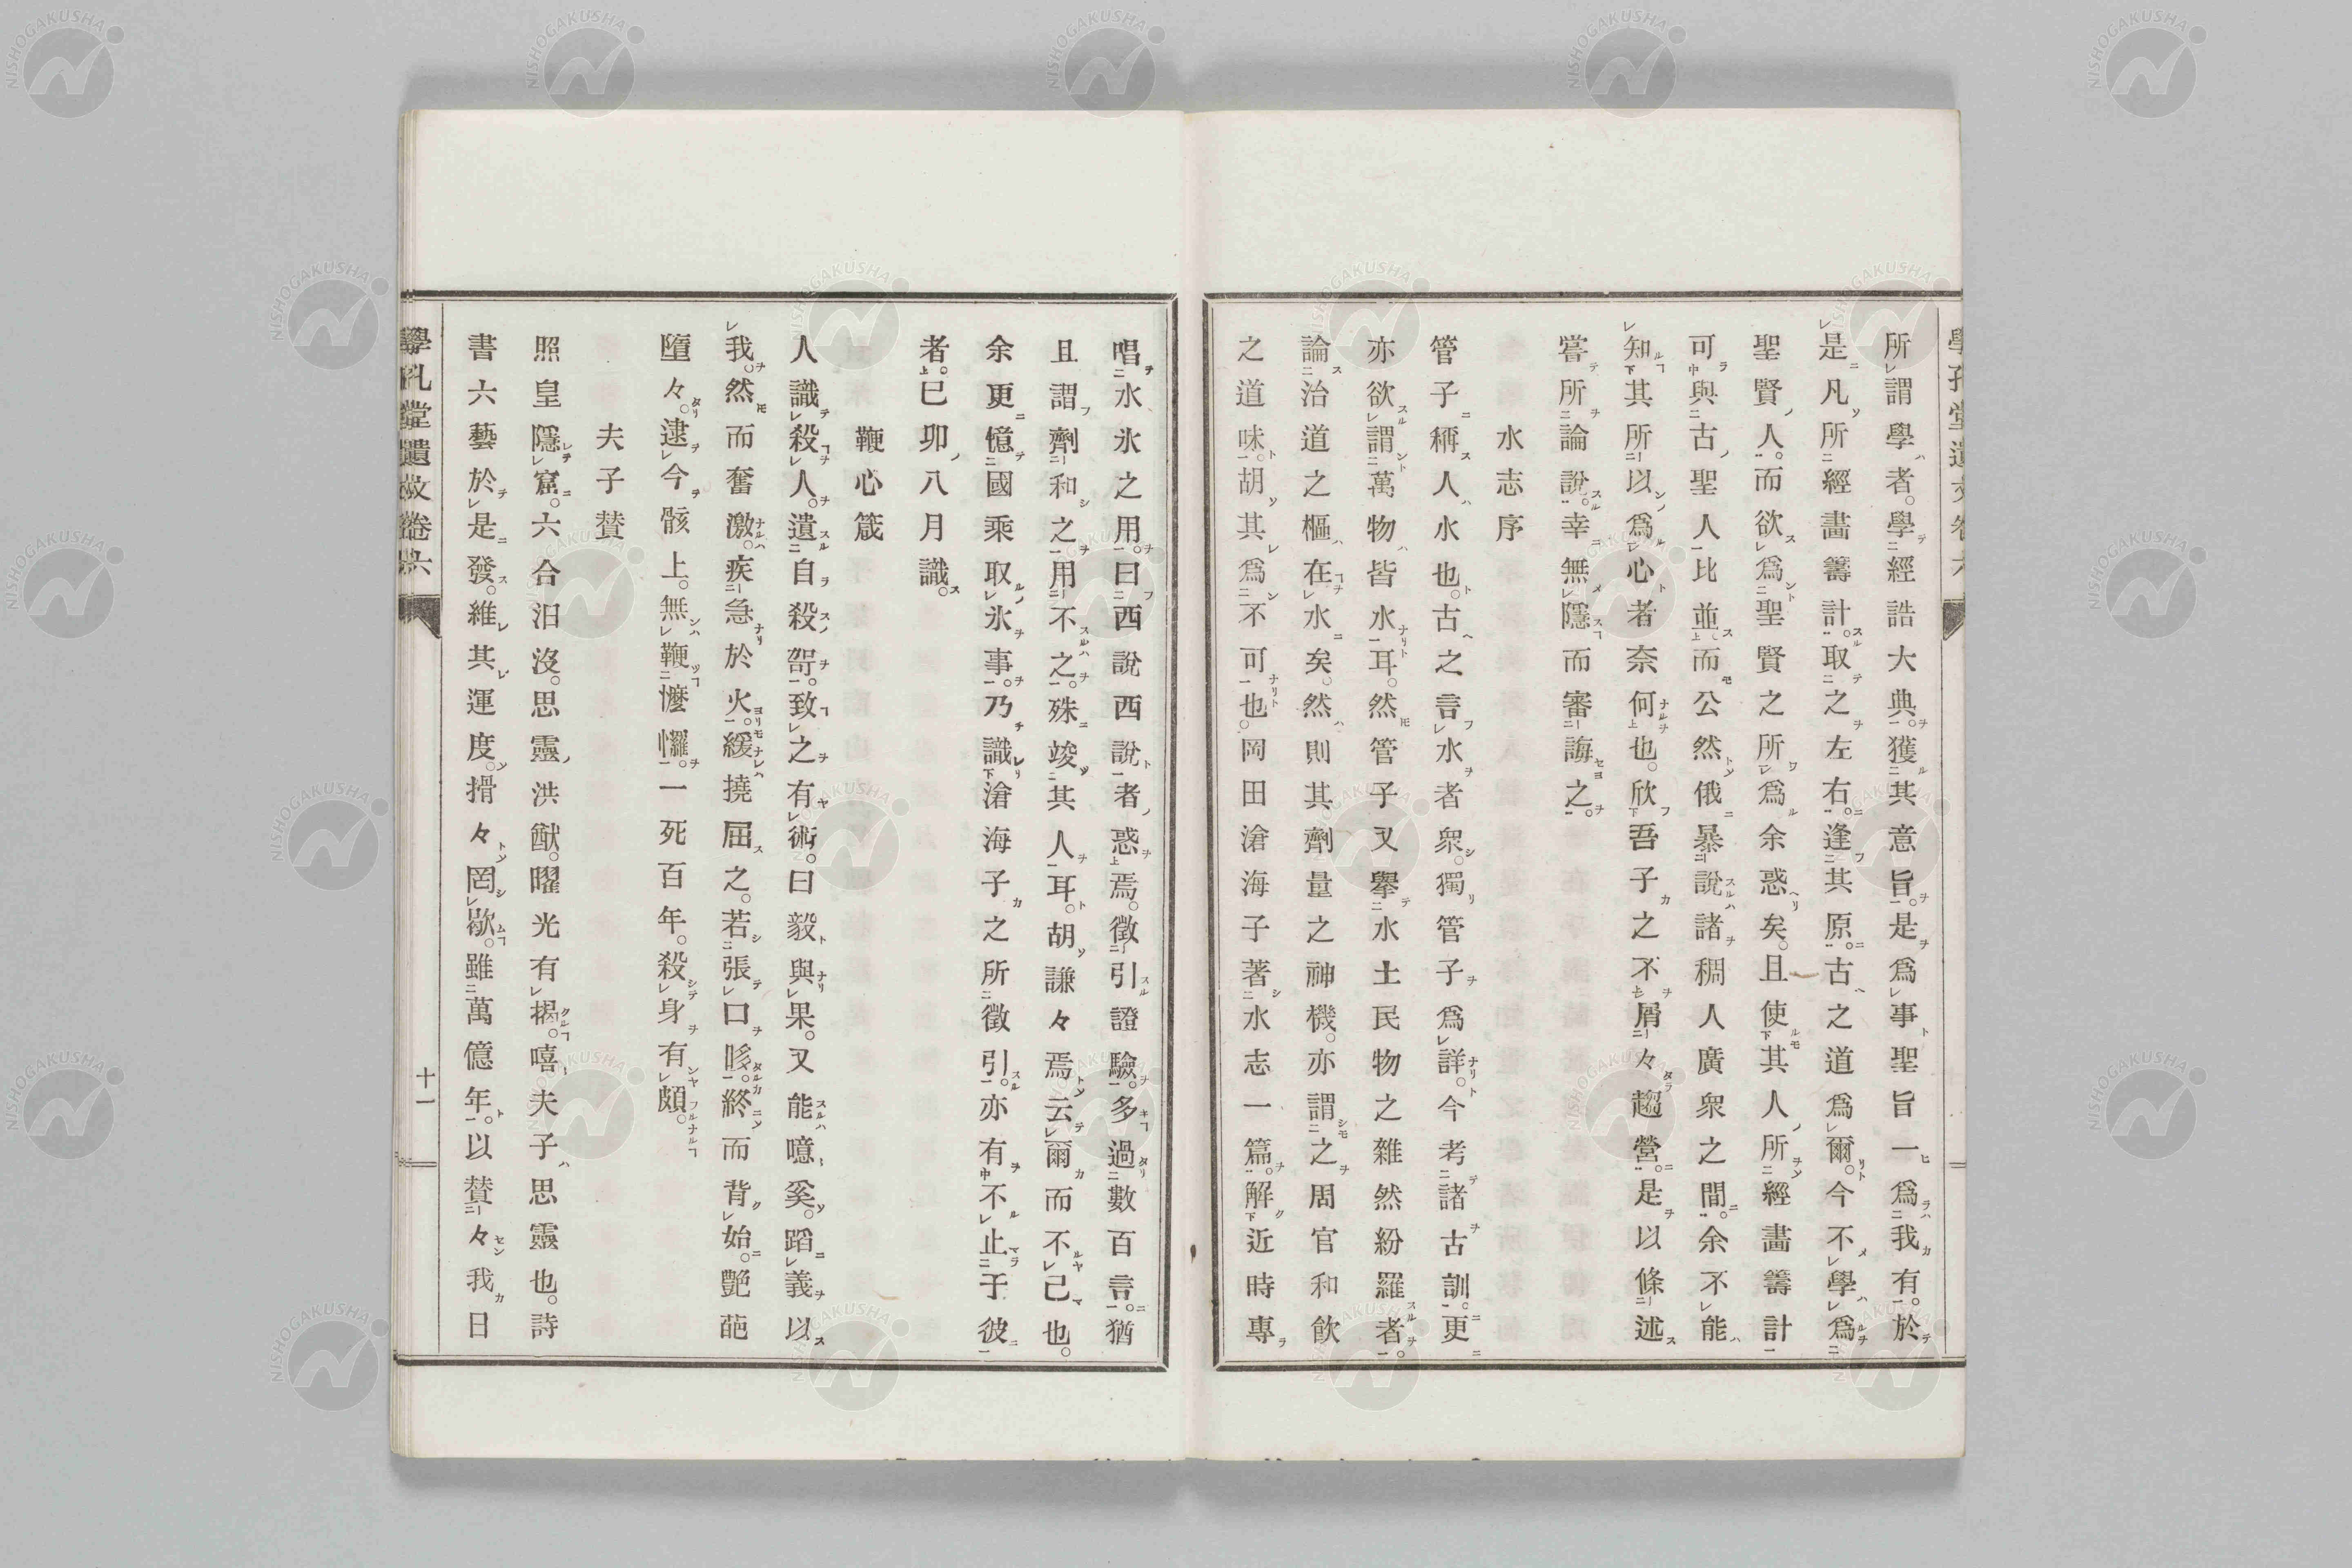 所謂學者。學經誥大典。獲其意旨。是爲事聖旨一爲我有。於
是凡所經畫籌計。取之左右。逢其原。古之道爲爾。今不學爲
聖賢人。而欲爲聖賢之所爲余惑矣。且使其人所經畫籌計
可與古聖人比並而公然俄暴說諸稠人廣衆之間。余不能
知其所以爲心者奈何也。欣吾子之不屑々趨營。是以條述
嘗所論說。幸無隱而審誨之。
水志序
管子稱人水也。古之言水者衆。獨管子爲詳。今考諸古訓。更
亦欲謂萬物皆水耳。然管子又擧水土民物之雜然紛羅者。
論治道之樞在水矣。然則其劑量之神機。亦謂之周官和飮
之道味。胡其爲不可也。岡田滄海子著水志一篇。解近時專
唱水氷之用。曰西說西說者惑焉。徵引證驗。多過數百言。猶
且謂劑和之用不之。殊竣其人耳。胡謙々焉云爾而不已也。
余更憶國乘取氷事。乃識滄海子之所徵引。亦有不止于彼
者。巳卯八月識。
鞭心箴
人識殺人。遺自殺哿。致之有術。曰毅與果。又能噫奚。蹈義以
我。然而奮激。疾急於火。緩撓屈之。若張口咳。終而背始。艷葩
墮々。逮今骸上。無鞭懡㦬。一死百年。殺身有頗。
夫子贊
照皇隱窟。六合汨沒。思靈洪猷。曜光有揭。嘻夫子思靈也。詩
書六藝於是發。維其運度。搰々罔歇。雖萬億年。以贊々我日
學孔堂遺文卷六
十一
NISHOGAKUSHA